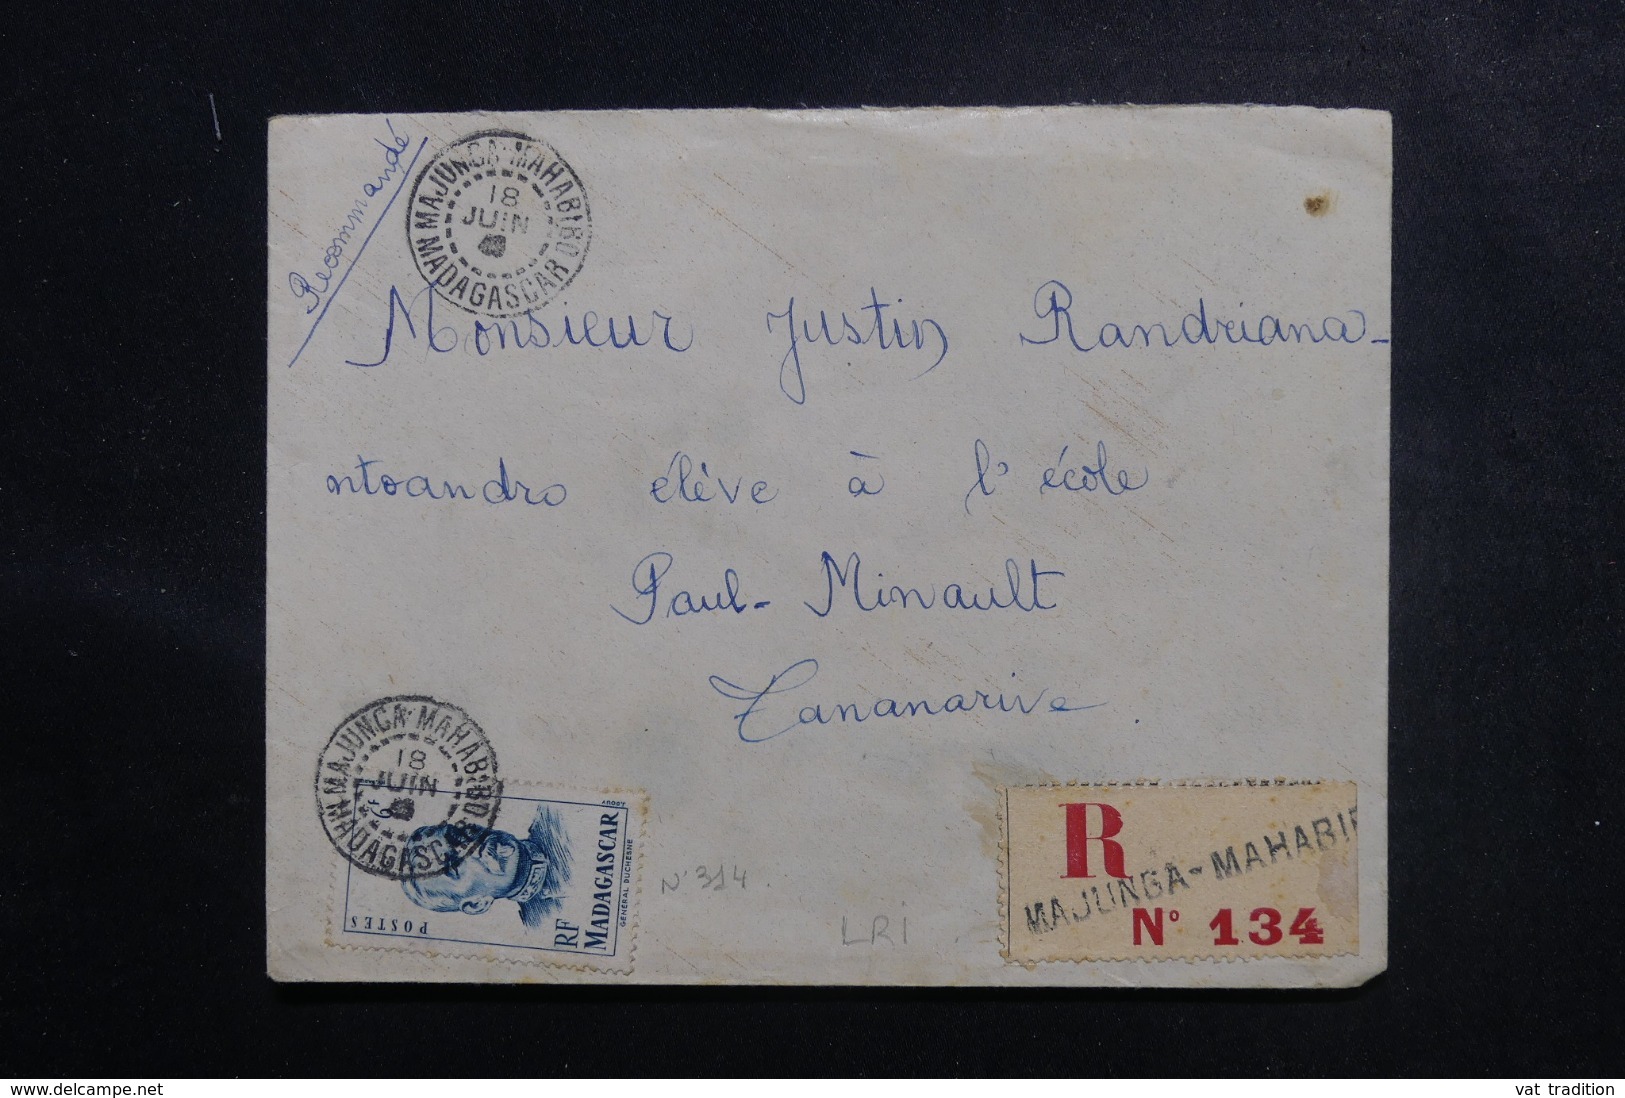 Recommandé
MAJUNGA-MAHABIBO
18
JUIN
MADAGASCAR
Monsieur Justin Randriana-
ntoandro élève à l'école
Paul-Minault
Tananarive.
MAJUNGA-MAHABIBO
18
JUIN
MADAGASCAR
POSTES
RF
MADAGASCAR
GÉNÉRAL DUCHESNE
N°314.
LRI
R
MAJUNGA-MAHABIB
N° 134
www.delcampe.net
vat tradition